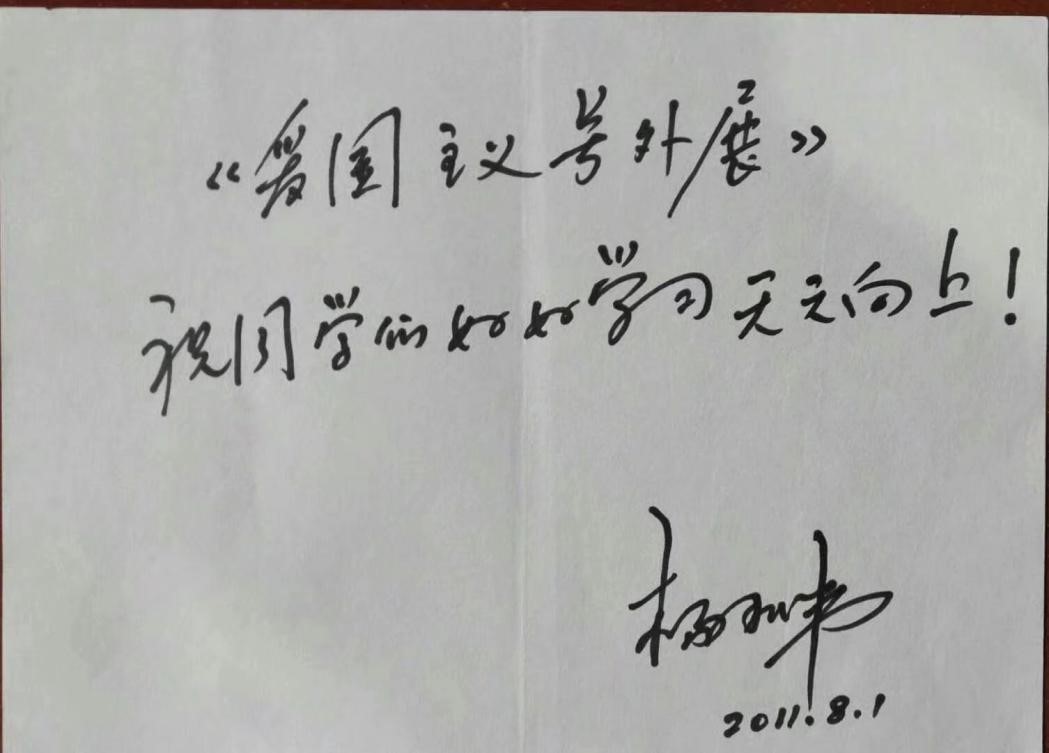 《爱国主义号外展》
祝同学们好好学习天天向上!
杨利伟
2011.8.1